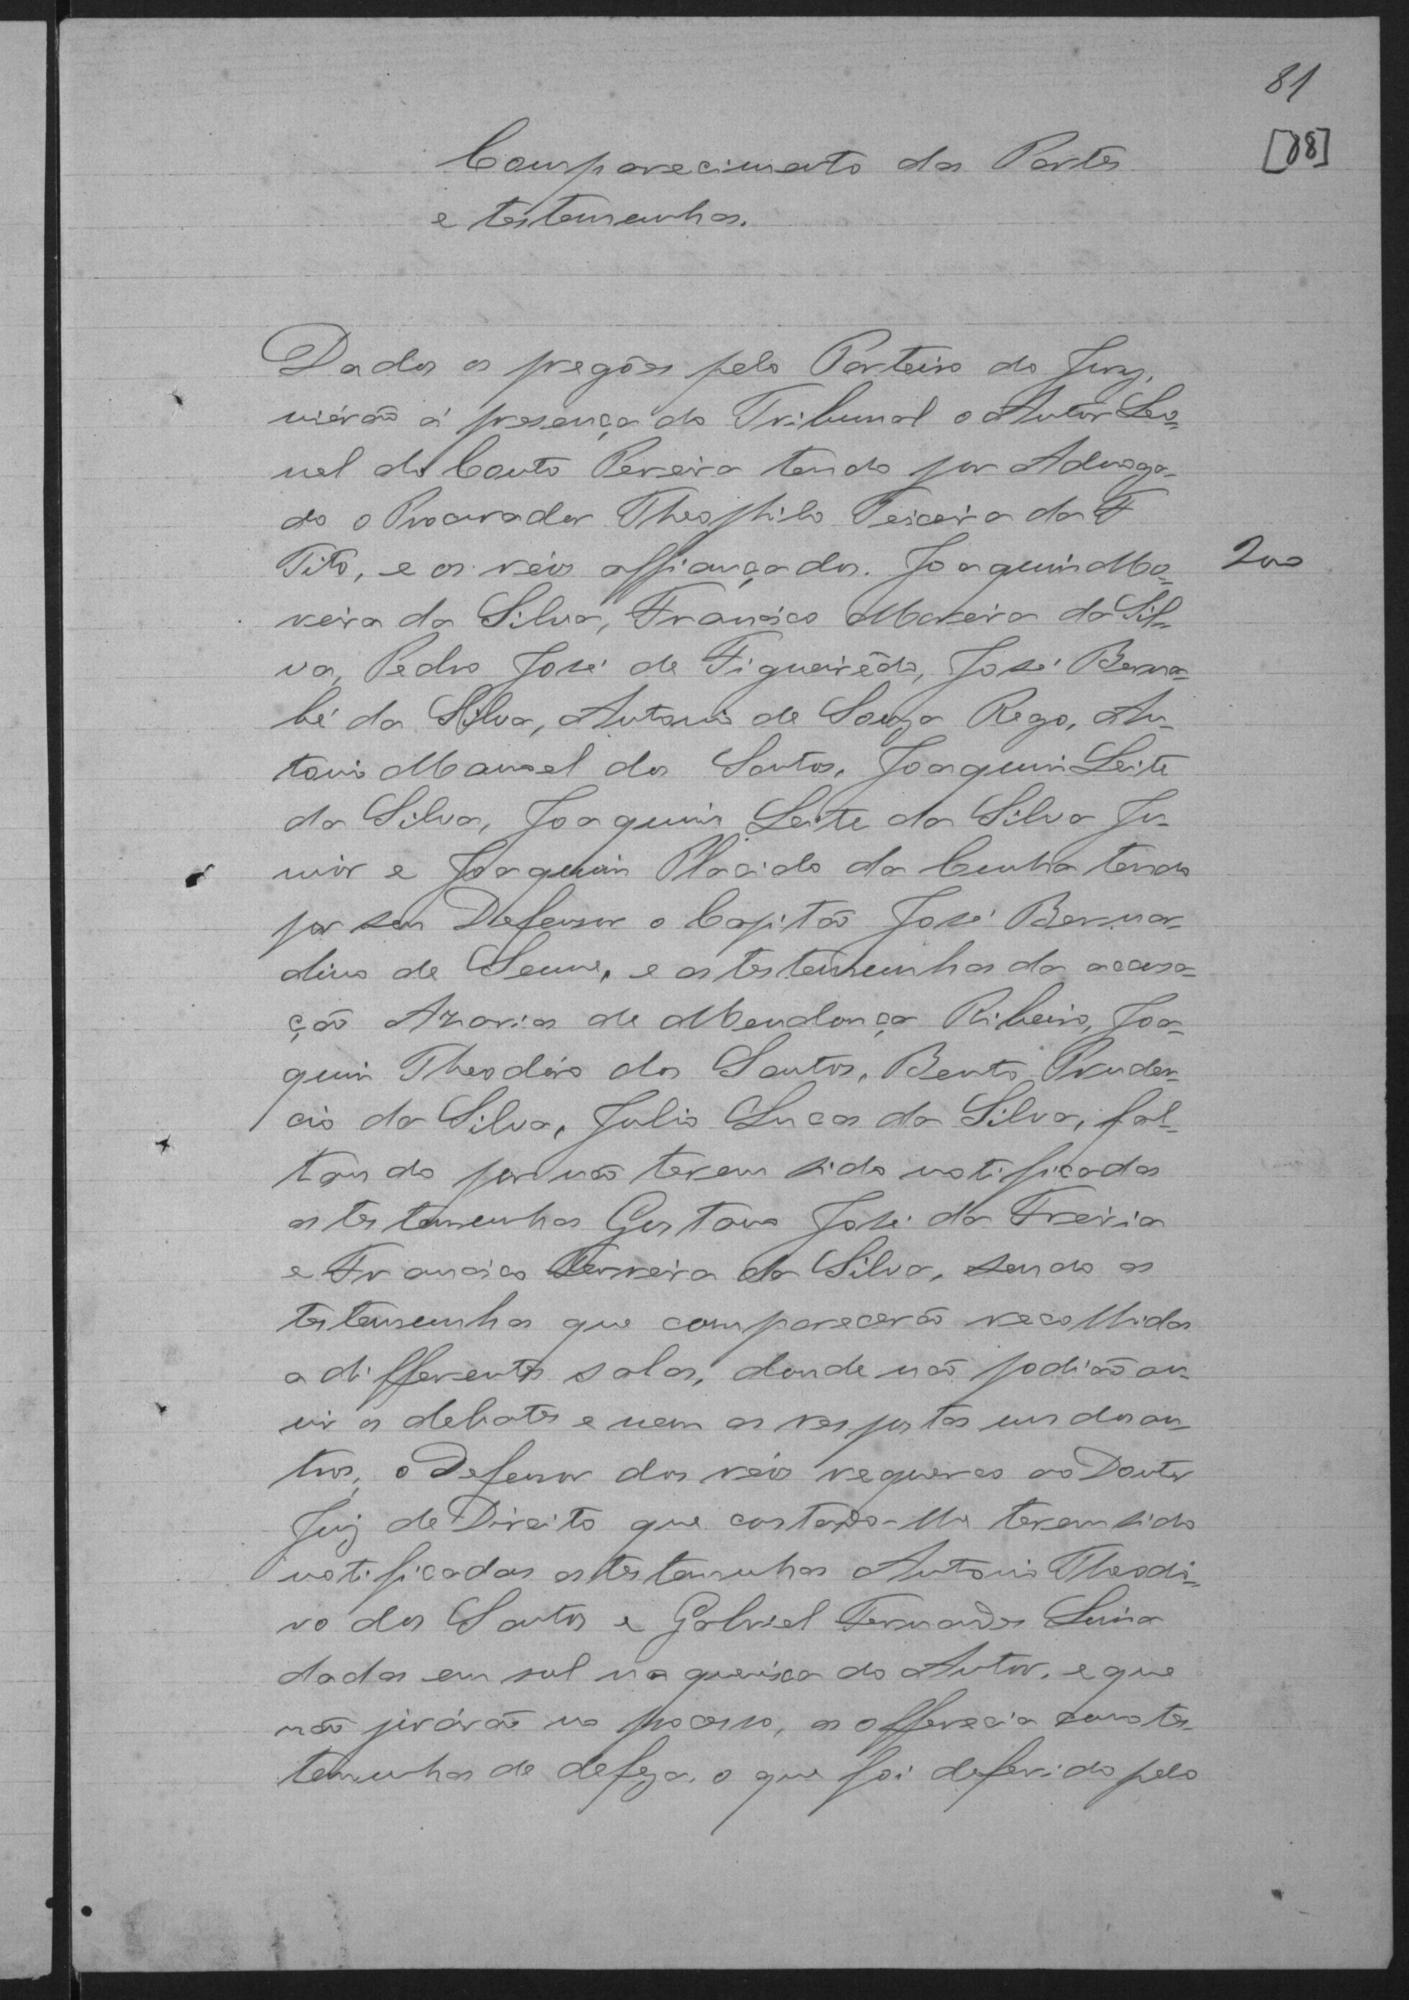 81
[88]
Comparecimento das Partes
e testemunhas.
Dados os pregões pelo Porteiro do Jury,
vierão á presença do Tribunal o Autor Leo=
nel do Couto Pereira tendo por Advoga-
do o Procurador Theophilo Teixeira da F
Tito, e os réos affiançados. Joaquim Mo=
reira da Silva, Francisco Moreira da Sil=
va, Pedro José de Figueirêdo, José Berna=
bé da Silva, Antonio de Souza Rego, An=
tonio Manoel dos Santos, Joaquim Leite
da Silva, Joaquim Leite da Silva Ju=
nior e Joaquim Placido da Cunha tendo
por seu Defensor o Capitão José Bernar=
dino de Senne, e as testemunhas da accusa=
ção Azarias de Mendonça Ribeiro, Joa=
quim Theodóro dos Santos, Bento Pruden=
cio da Silva, Julio Lucas da Silva, fal=
tando por não terem sido notificadas
as testemunhas Gustavo José da
e Francisco Ferreira da Silva, sendo as
testemunhas que comparecerão recolhidas
a differentes salas, donde não podião ou=
vir os debates e nem as respostas uns dos ou=
tros, o Defensor dos réos requereo ao Doutor
Juiz de Direito que constando-lhe terem sido
notificadas as testemunhas Antonio Theodo=
ro dos Santos e Gabriel Fernandes Lima
dadas em rol na queixa do Autor, e que
não jurárão no processo, as offerecia como tes=
temunhas de defeza, o que foi deferido pelo